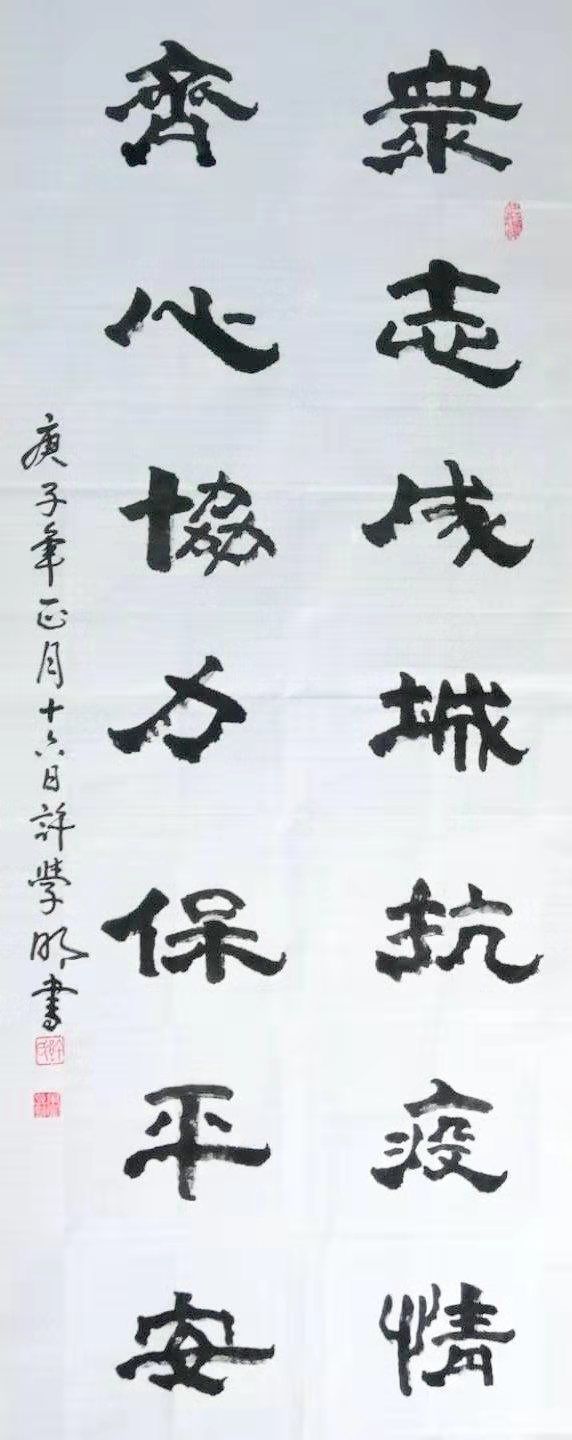 衆志成城抗疫情
齊心協力保平安
庚子年正月十六日許學明書